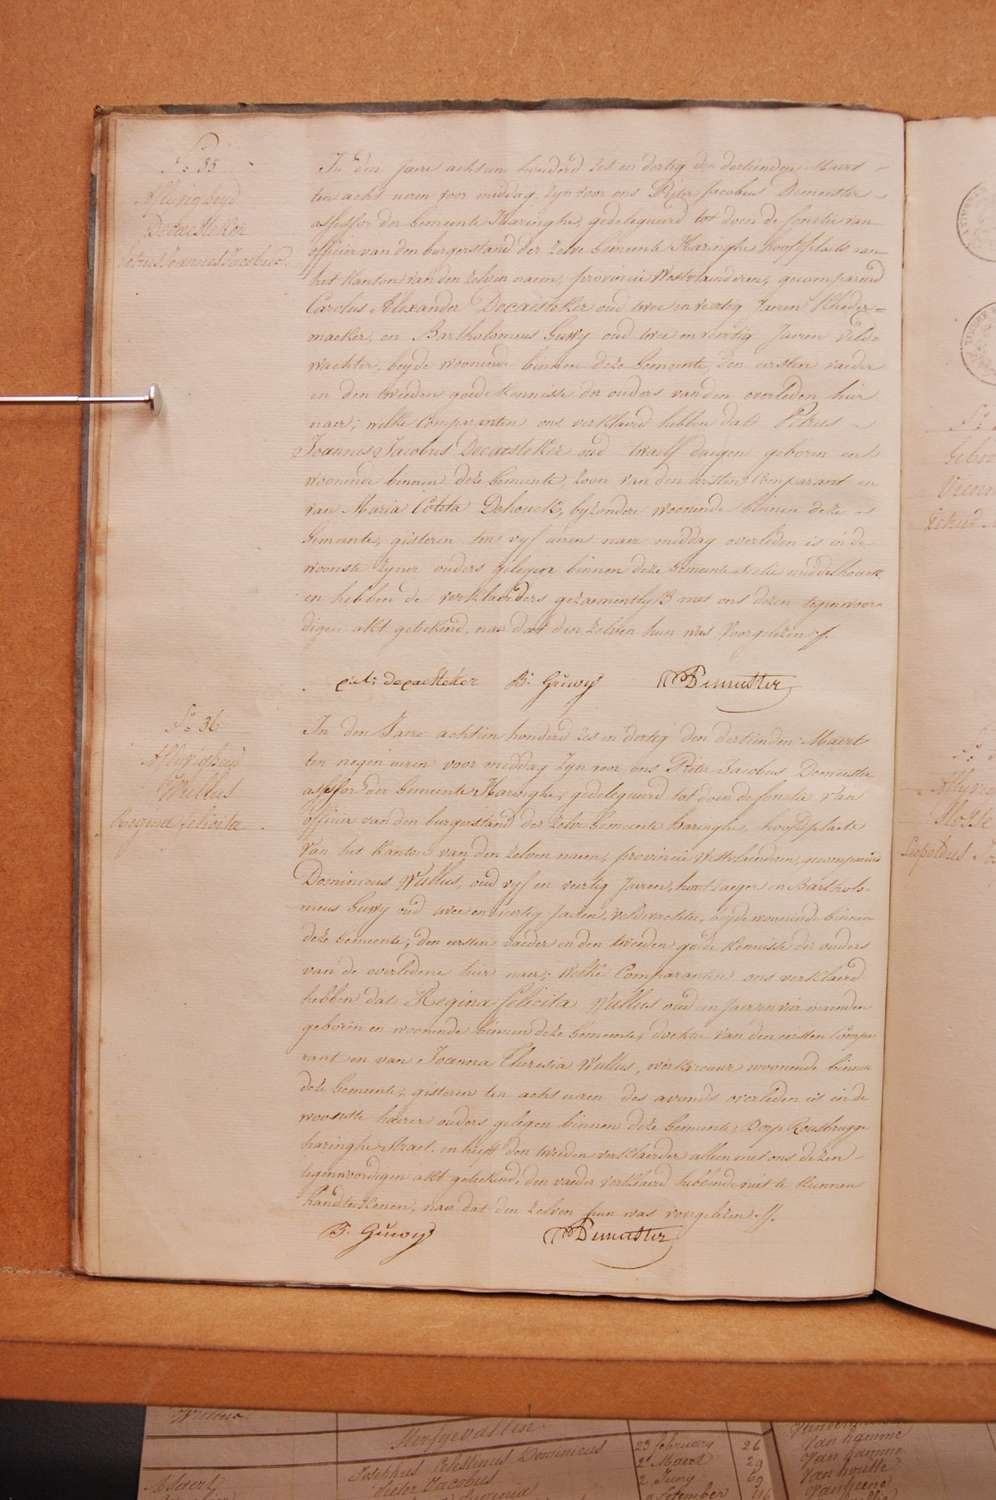 N.o 35
Aflyvigheid
Decaesteker
Petrus Joannes Jacobus
In den Jaere achtien honderd zes en dertig den dertienden Maert
ten acht uren voor middag, zyn voor ons Pieter Jacobus Demeester
assessor der Gemeente Haringhe, gedelegueerd tot doen de functie van
officier van den burgerstand der zelve Gemeente Haringhe hoofdplaets van
het kanton van den zelven naem, provincie Westvlaenderen, gecompareerd
Carolus Alexander Decaesteker oud twee en veertig Jaeren kleder=
maeker, en Bartholomeus Guwy oud twee en veertig Jaeren veld=
wachter, beyde woonende binnen deze Gemeente, den eersten vaeder
en den tweeden goede kennisse der ouders van den overleden hier
naer; welke comparanten ons verklaerd hebben dat Petrus
Joannes Jacobus Decaesteker oud twaelf daegen geboren en
woonende binnen deze Gemeente, zoon van den eersten Comparant en
van Maria Coleta Dehouck, byzondere woonende binnen deze
Gemeente, gisteren ten vyf uren naer middag overleden is in de
woonste zyner ouders gelegen binnen deze Gemeente middelhouck
en hebben de verklaerders gezaementlyk met ons dezen tegenwoor=
digen akt geteekend, naer dat den zelven hun was voorgelezen.
decaesteker B. Guwy PDemeester
N.o 36
Aflyvigheid
Wullus
Regina Felicita
In den Jaere achtien honderd zes en dertig den dertienden Maert
ten negen uren voor middag zyn voor ons Pieter Jacobus Demeester
assessor der Gemeente Haringhe, gedelegueerd tot doen de functie van
officier van den burgerstand der zelve Gemeente haringhe, hoofdplaets
van het kanton van den zelven naem, provincie Westvlaenderen, gecompareerd
Dominicus Wullus, oud vyf en veertig Jaeren, houtzaeger en Bartholo=
meus Guwy oud twee en veertig Jaeren, veldwachter, beyde woonende binnen
deze Gemeente, den eersten vaeder en den tweeden goede kennisse der ouders
van de overledene hier naer; welke Comparanten ons verklaerd
hebben dat Regina Felicita Wullus oud een Jaer en vier maenden
geboren en woonende binnen deze Gemeente, dochter van den eersten compa=
rant en van Joanna Theresia Wullus, werkvrouw woonende binnen
deze Gemeente, gisteren ten acht uren des avonds overleden is in de
woonste haerer ouders gelegen binnen deze Gemeente, Dorp Rousbrugge
haringhe straet en heeft den tweeden verklaerder alleen met ons dezen
tegenwoordigen akt geteekend, den vaeder verklaerd hebbende niet te kunnen
handteekenen, naer dat den zelven hun was voorgelezen.
B. Guwy PDemeester
Sterfgevallen
Dominicus 23 february 26
Jacobus 2 Maert 29
2 Juny 69
Van hamme
Van hamme
Van houtte